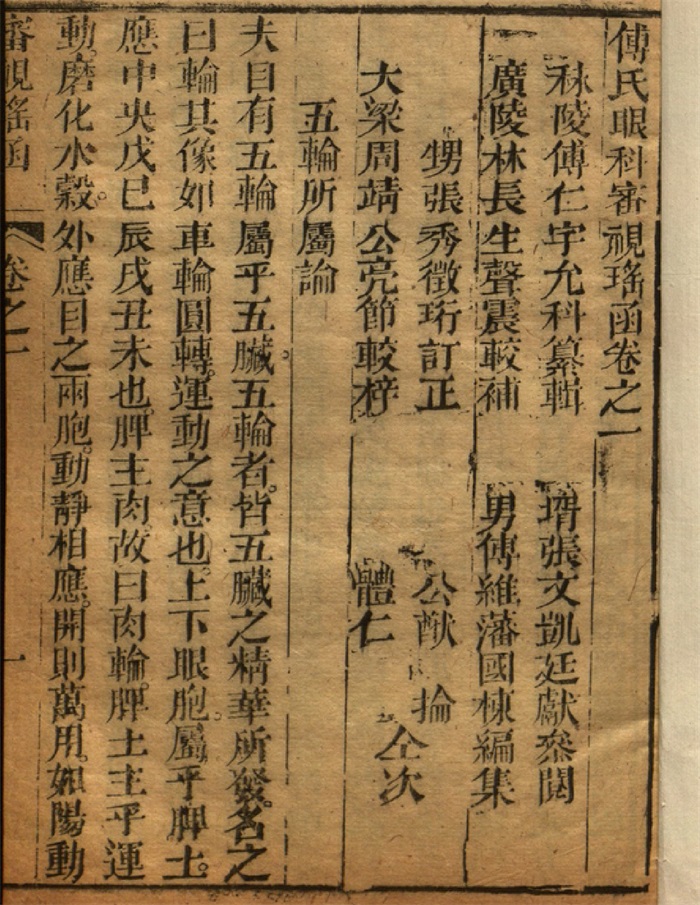 傅氏眼科審視瑤函卷之一
秣陵傅仁宇允科纂輯 壻張文凱廷獻叅閱
廣陵林長生聲震較補 男傅維藩國棟編集
甥張秀徵珩訂正 公猷 掄
大梁周靖公亮節較梓 體仁 仝次
五輪所屬論
夫目有五輪屬乎五臟。五輪者。皆五臟之精華所發。名之
曰輪其像如車輪圓轉。運動之意也。上下眼胞。屬乎脾土。
應中央戊巳辰戌丑未也。脾主肉故曰肉輪。脾土主乎運
動。磨化水榖。外應目之兩胞。動靜相應。開則萬用。如陽動
審視瑤函 卷之一 一